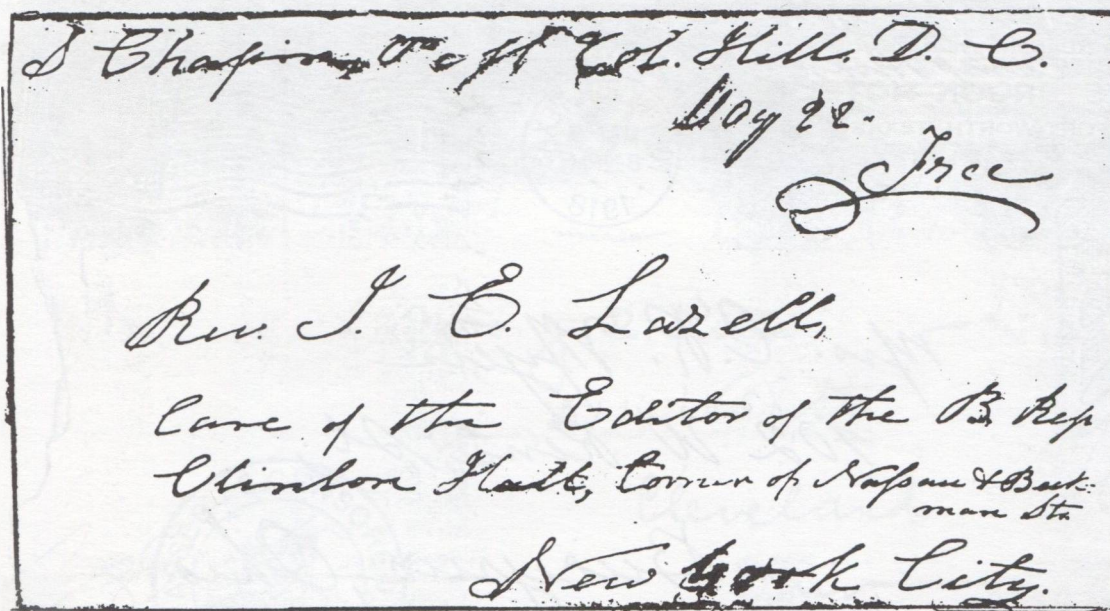 S Chapin, P off Col. Hill. D. C.
May 22.
Free
Rev. J. E. Lazell,
Care of the Editor of the B. Rep
Clinton Hall, Corner of Nassau & Beek
man Sts
New York City.